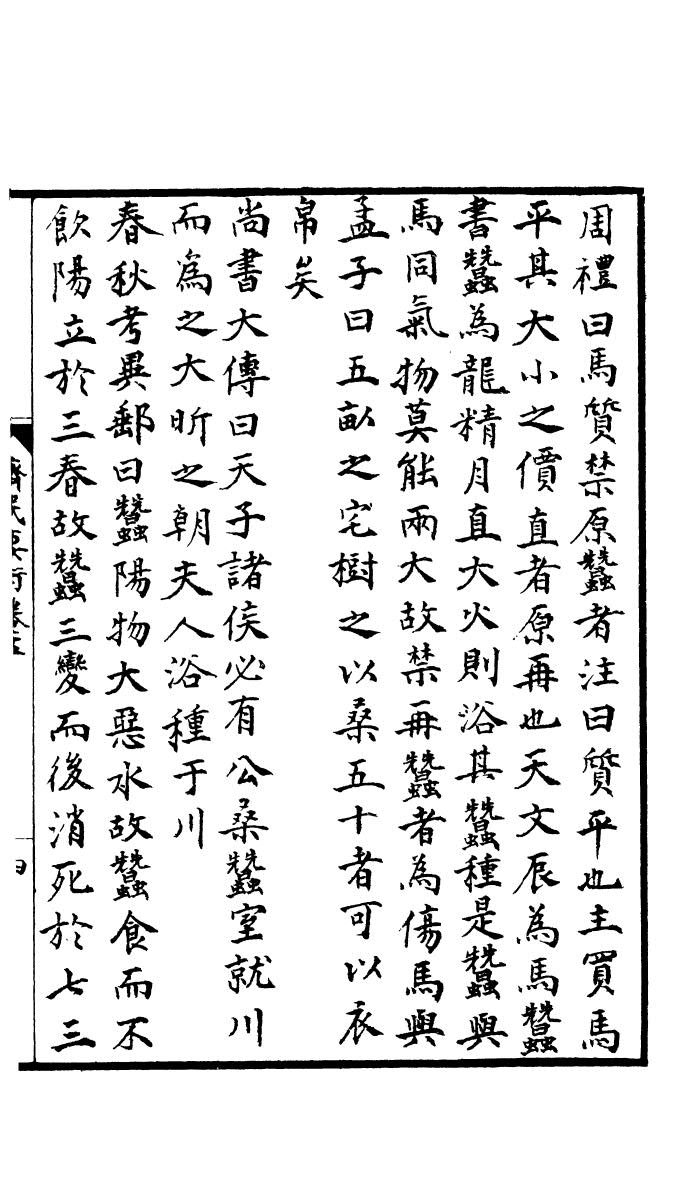 周禮曰馬質禁原蠶者注曰質平也主買馬
平其大小之價直者原再也天文辰為馬蠶
書蠶為龍精月直大火則浴其蠶種是蠶與
馬同氣物莫能兩大故禁再蠶者為傷馬與
孟子曰五畝之宅樹之以桑五十者可以衣
帛矣
尚書大傳曰天子諸侯必有公桑蠶室就川
而為之大昕之朝夫人浴種于川
春秋考異郵曰蠶陽物大惡水故蠶食而不
飲陽立於三春故蠶三變而後消死於七三
齊民要術卷五
四